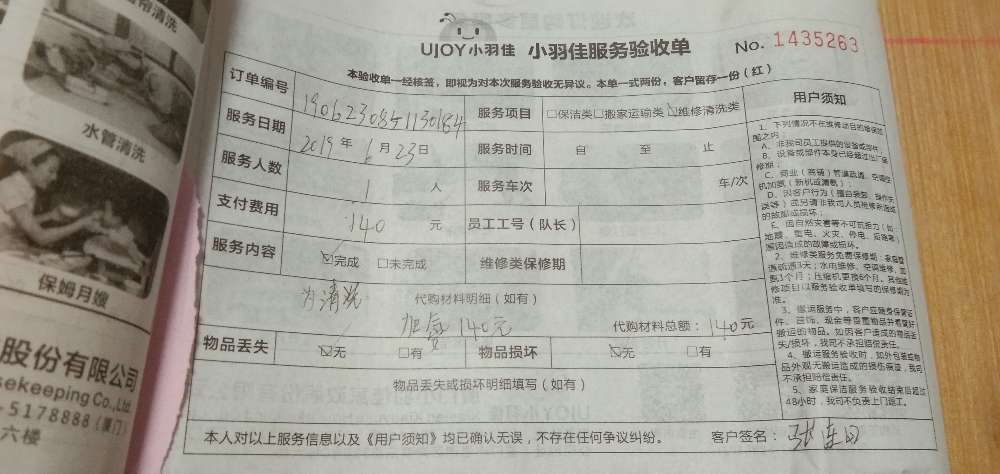 清洗
水管清洗
保姆月嫂
股份有限公司
sekeeping Co., Ltd.
5178888 (厦门)
六楼
UJOY小羽佳 小羽佳服务验收单 No. 1435263
本验收单一经核签，即视为对本次服务验收无异议。本单一式两份，客户留存一份（红）
订单编号 服务项目 □保洁类□搬家运输类☑维修清洗类
服务日期 2019年6月23日 服务时间 自 至 止
服务人数 1 人 服务车次 车/次
支付费用 140 元 员工工号（队长）
服务内容 ☑完成 □未完成 维修类保修期
清洗 代购材料明细（如有）
加氨 140元 代购材料总额：140元
物品丢失 ☑无 □有 物品损坏 ☑无 □有
物品丢失或损坏明细填写（如有）
本人对以上服务信息以及《用户须知》均已确认无误，不存在任何争议纠纷。 客户签名：
用户须知
1、下列情况不在维修项目的维保范
围之内：
A、非我司员工提供的设备或部件；
B、设备或部件本身已经超过出厂保
修期；
E、因自然灾害等不可抗拒力（如
地震、雷电、火灾、停电、
造成的故障或损坏。
2、维修类服务免费保修期：家庭管
道疏通3天；水电维修、空调维修、加
氨1个月；压缩机更换6个月，其他维
修项目以服务验收单填写的保修期为
准。
3、搬运服务中，客户应随身保管证
件、首饰、现金等贵重物品并看管好
搬运的物品。如因客户造成的物品丢
失/损坏，我司不承担赔偿责任。
4、搬运服务验收时，如外包装或物
品外观无搬运造成的损伤痕迹，我司
不承担赔偿责任。
5、家庭保洁服务验收结束后超过
48小时，我司不负责上门返工。